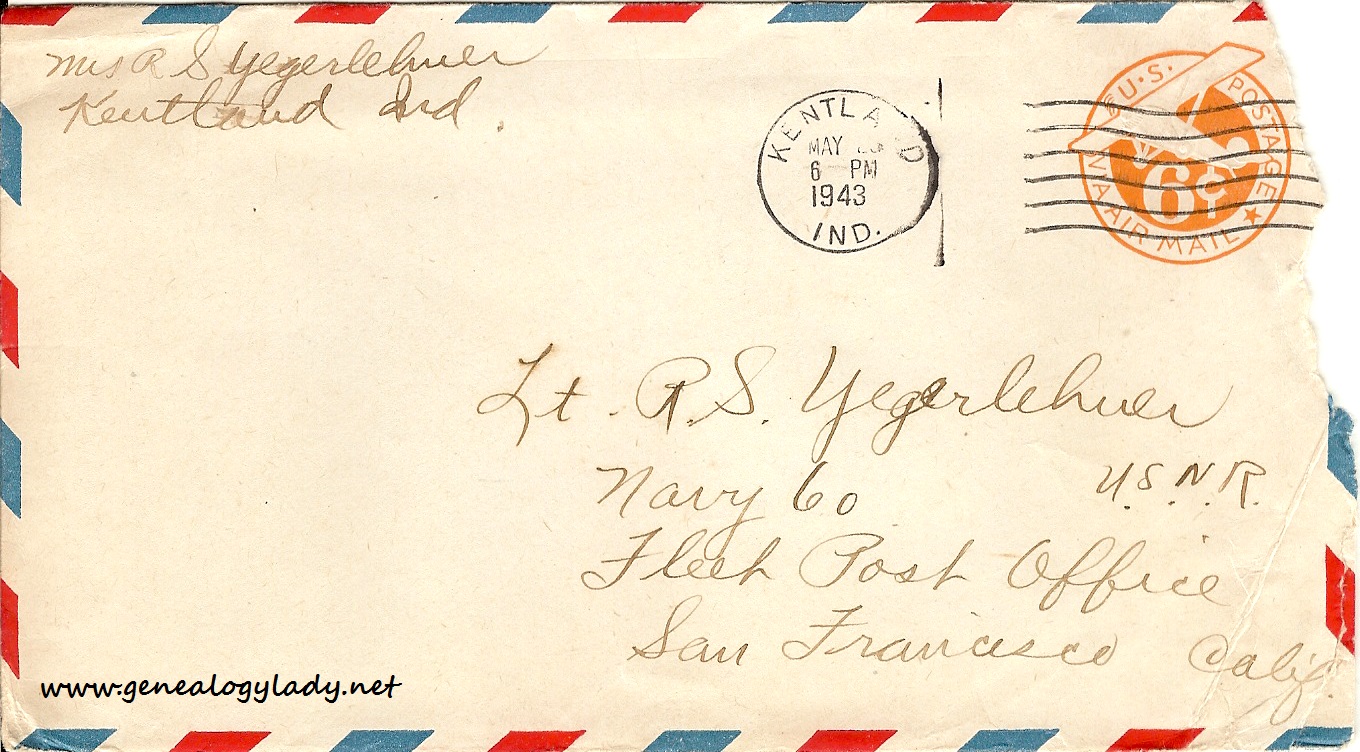 Mrs R S Yegerlehner
Kentland Ind.
KENTLAND
MAY
6 PM
1943
IND.
U.S. POSTAGE
6¢
VIA AIR MAIL
Lt. R.S. Yegerlehner
Navy 60 U.S.N.R.
Fleet Post Office
San Francisco Calif.
www.genealogylady.net